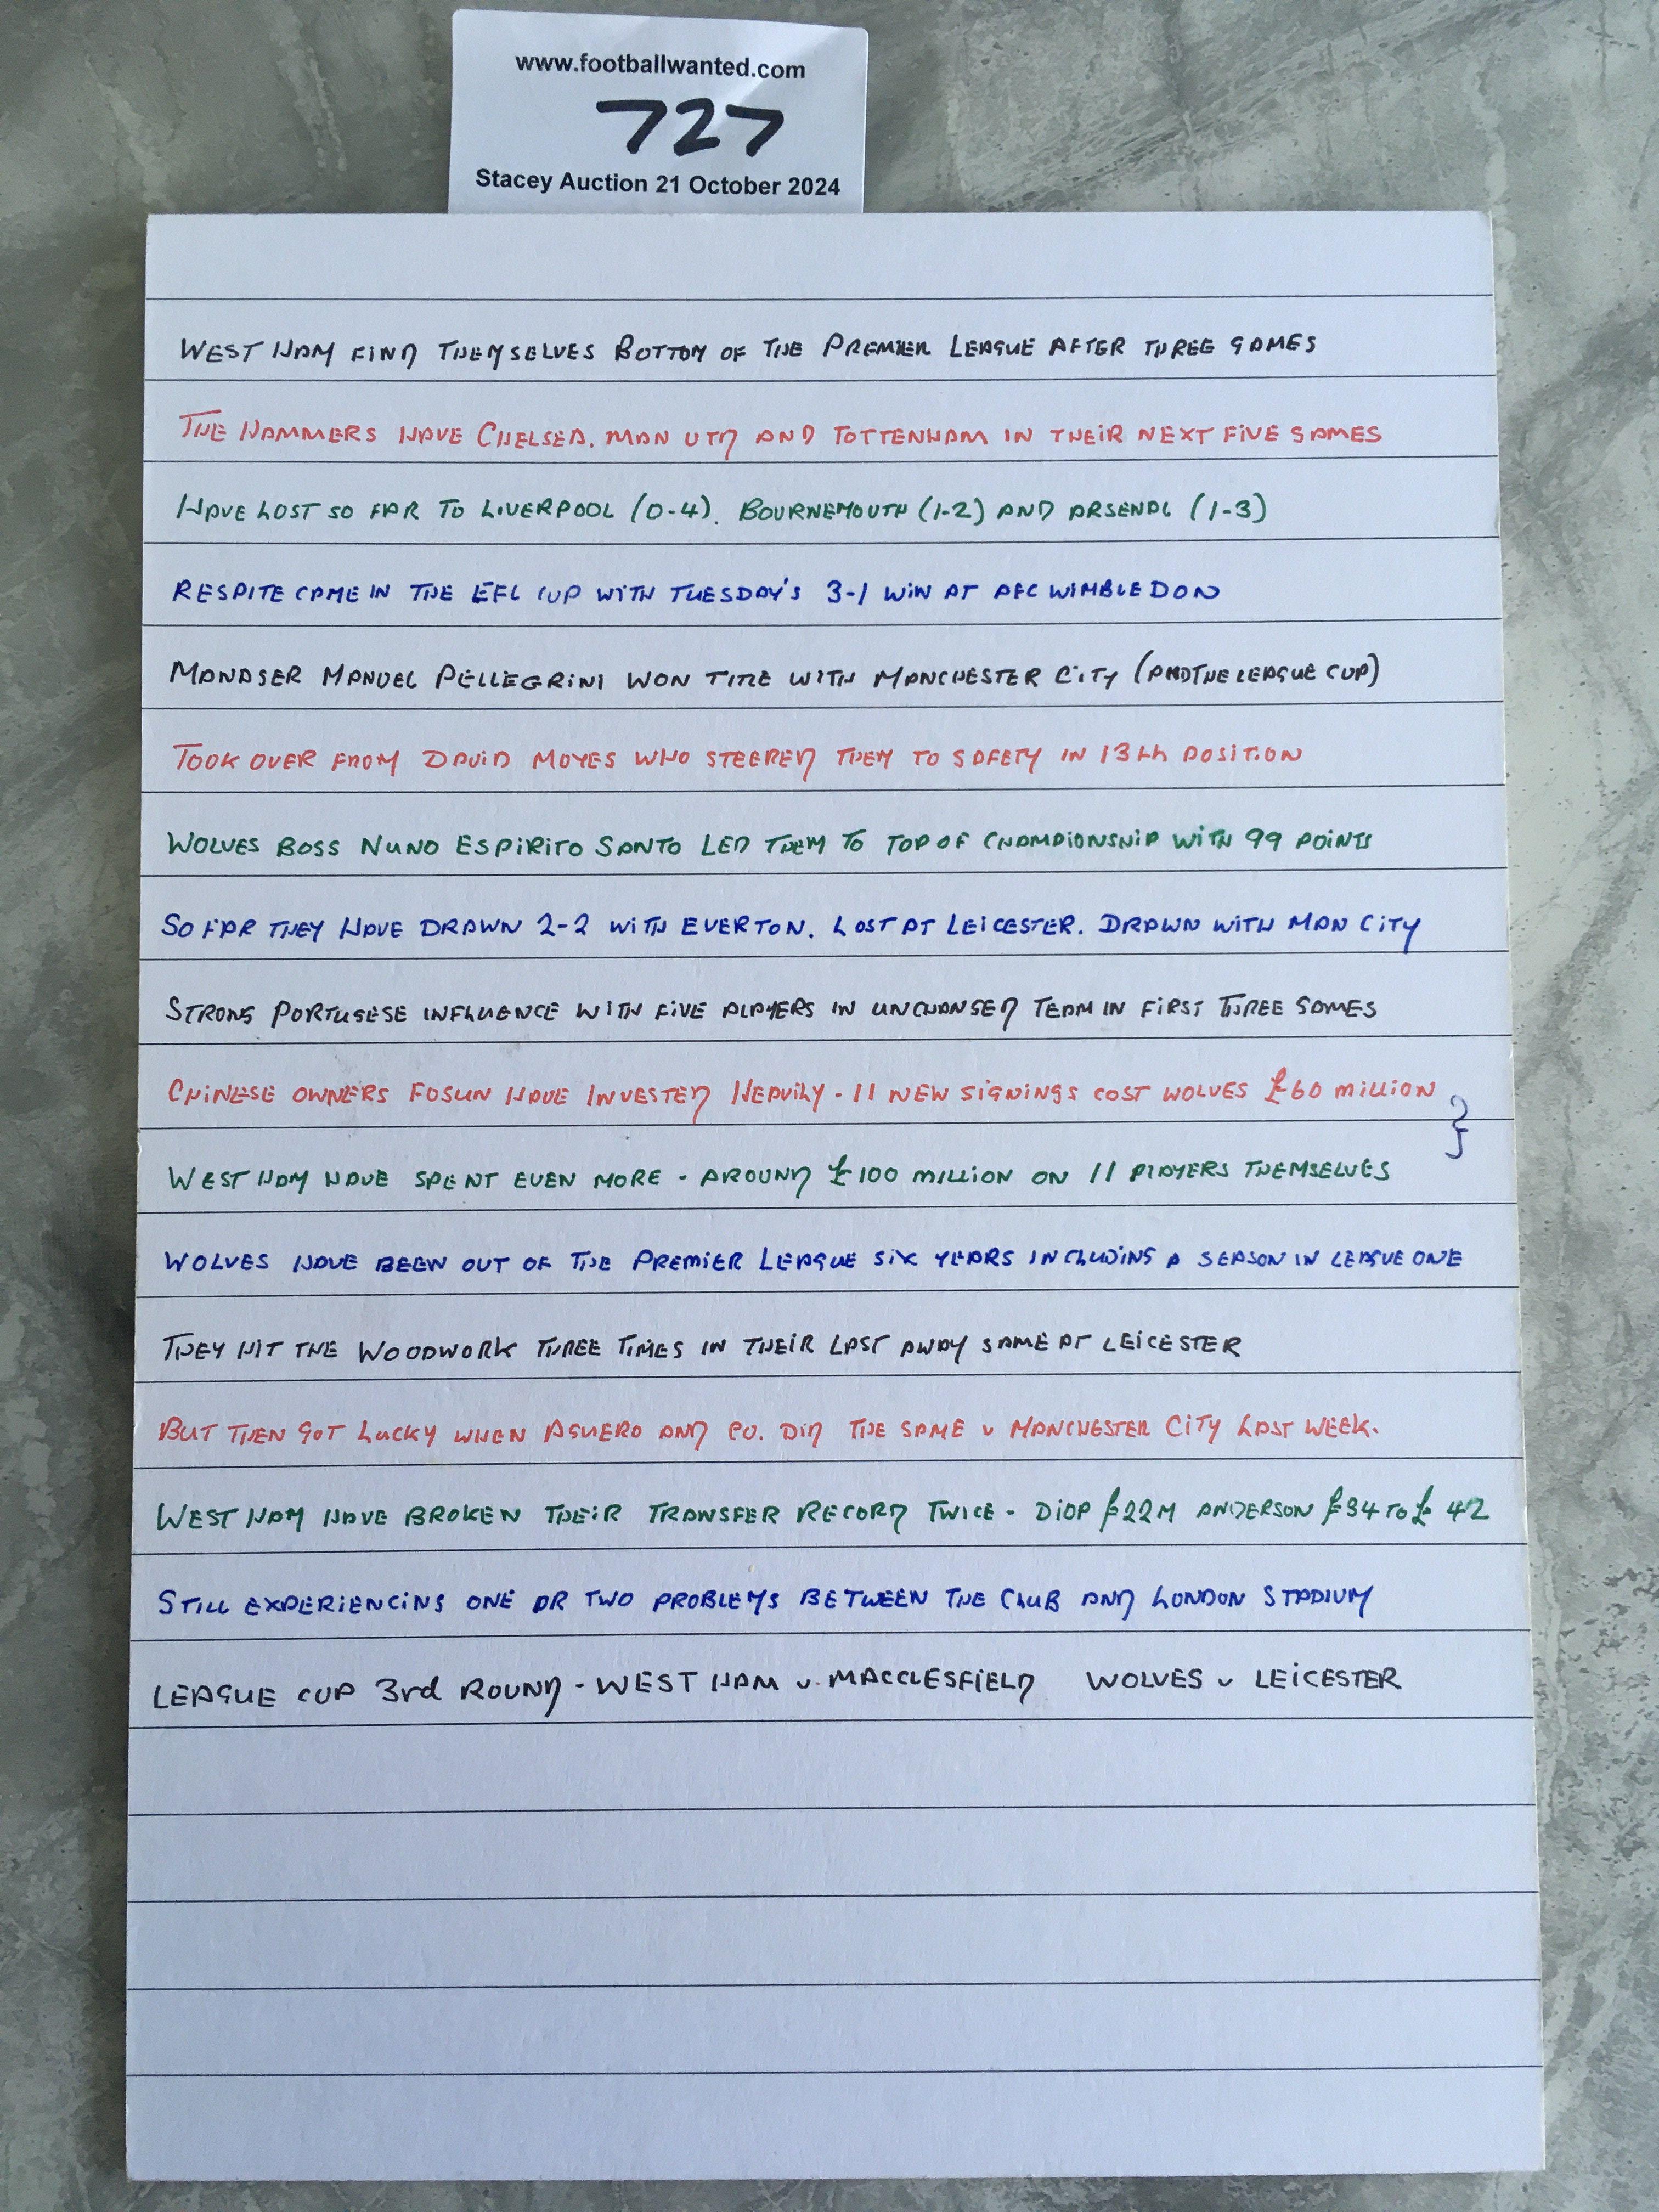 www.footballwanted.com
727
Stacey Auction 21 October 2024
WEST HAM FIND THEMSELVES BOTTOM OF THE PREMIER LEAGUE AFTER THREE GAMES
THE HAMMERS HAVE CHELSEA. MAN UTD AND TOTTENHAM IN THEIR NEXT FIVE GAMES
HAVE LOST SO FAR TO LIVERPOOL (0-4). BOURNEMOUTH (1-2) AND ARSENAL (1-3)
RESPITE CAME IN THE EFL CUP WITH TUESDAY'S 3-1 WIN AT AFC WIMBLEDON
MANAGER MANUEL PELLEGRINI WON TITLE WITH MANCHESTER CITY (AND THE LEAGUE CUP)
TOOK OVER FROM DAVID MOYES WHO STEERED THEM TO SAFETY IN 13th POSITION
WOLVES BOSS NUNO ESPIRITO SANTO LED THEM TO TOP OF CHAMPIONSHIP WITH 99 POINTS
SO FAR THEY HAVE DRAWN 2-2 WITH EVERTON. LOST AT LEICESTER. DRAWN WITH MAN CITY
STRONG PORTUGESE INFLUENCE WITH FIVE PLAYERS IN UNCHANGED TEAM IN FIRST THREE GAMES
CHINESE OWNERS FOSUN HAVE INVESTED HEAVILY - 11 NEW SIGNINGS COST WOLVES £60 MILLION }
WEST HAM HAVE SPENT EVEN MORE - AROUND £100 MILLION ON 11 PLAYERS THEMSELVES
WOLVES HAVE BEEN OUT OF THE PREMIER LEAGUE SIX YEARS INCLUDING A SEASON IN LEAGUE ONE
THEY HIT THE WOODWORK THREE TIMES IN THEIR LAST AWAY GAME AT LEICESTER
BUT THEN GOT LUCKY WHEN AGUERO AND CO. DID THE SAME v MANCHESTER CITY LAST WEEK.
WEST HAM HAVE BROKEN THEIR TRANSFER RECORD TWICE - DIOP £22M ANDERSON £34 TO £42
STILL EXPERIENCING ONE OR TWO PROBLEMS BETWEEN THE CLUB AND LONDON STADIUM
LEAGUE CUP 3rd ROUND - WEST HAM v. MACCLESFIELD WOLVES v LEICESTER